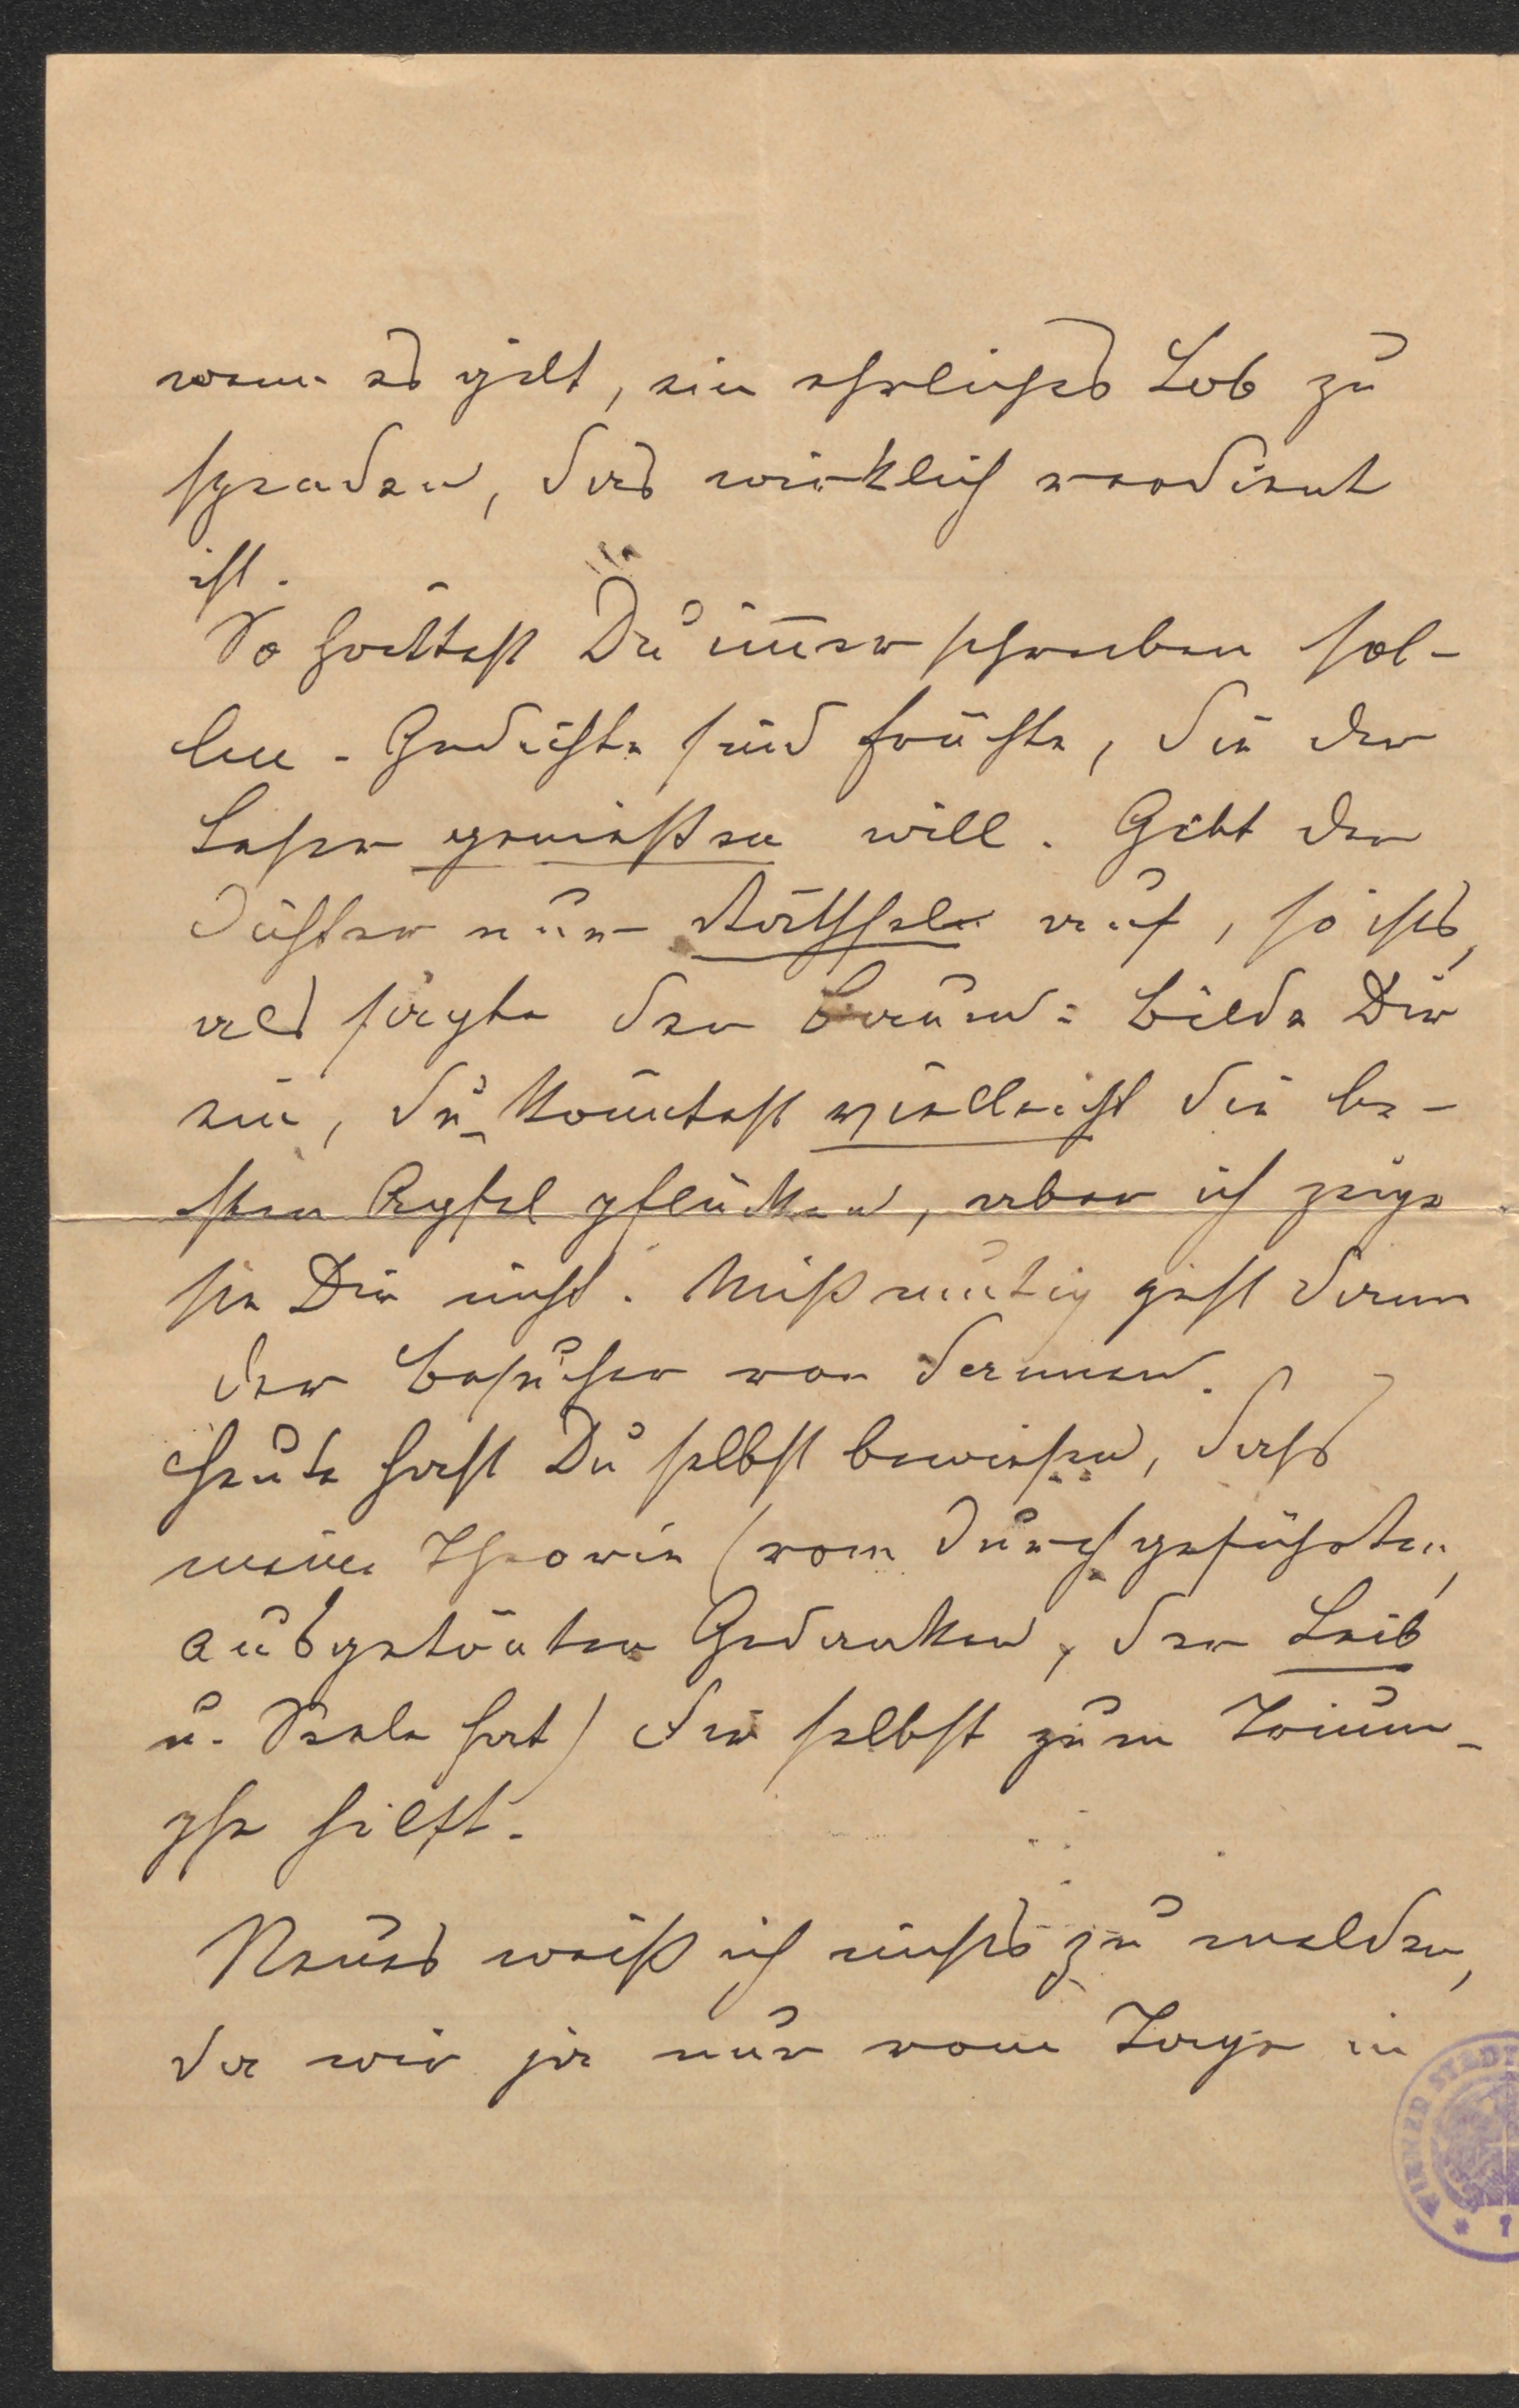 wenn es gilt, ein ehrliches Lob zu
spenden, das wirklich verdient
ist.
So hättest Du im̄er schreiben sol-
len. Gedichte sind Früchte, die der
Leser genießen will. Gibt der
Dichter nur Räthsel auf, so ists,
als sagte der Baum: Bilde Dir
ein, du könntest vielleicht die be-
sten Äpfel pflücken, aber ich zeige
sie Dir nicht. Mißmutig geht dann
der Besucher von dannen.
Heute hast Du selbst bewiesen, dass
meine Theorie (vom durchgeführten,
ausgetönten Gedanken, der Leib
u. Seele hat) Dir selbst zum Trium-
phe hilft.
Neues weiß ich nichts zu melden,
da wir ja nur vom Tage in
WIENER STÄDT